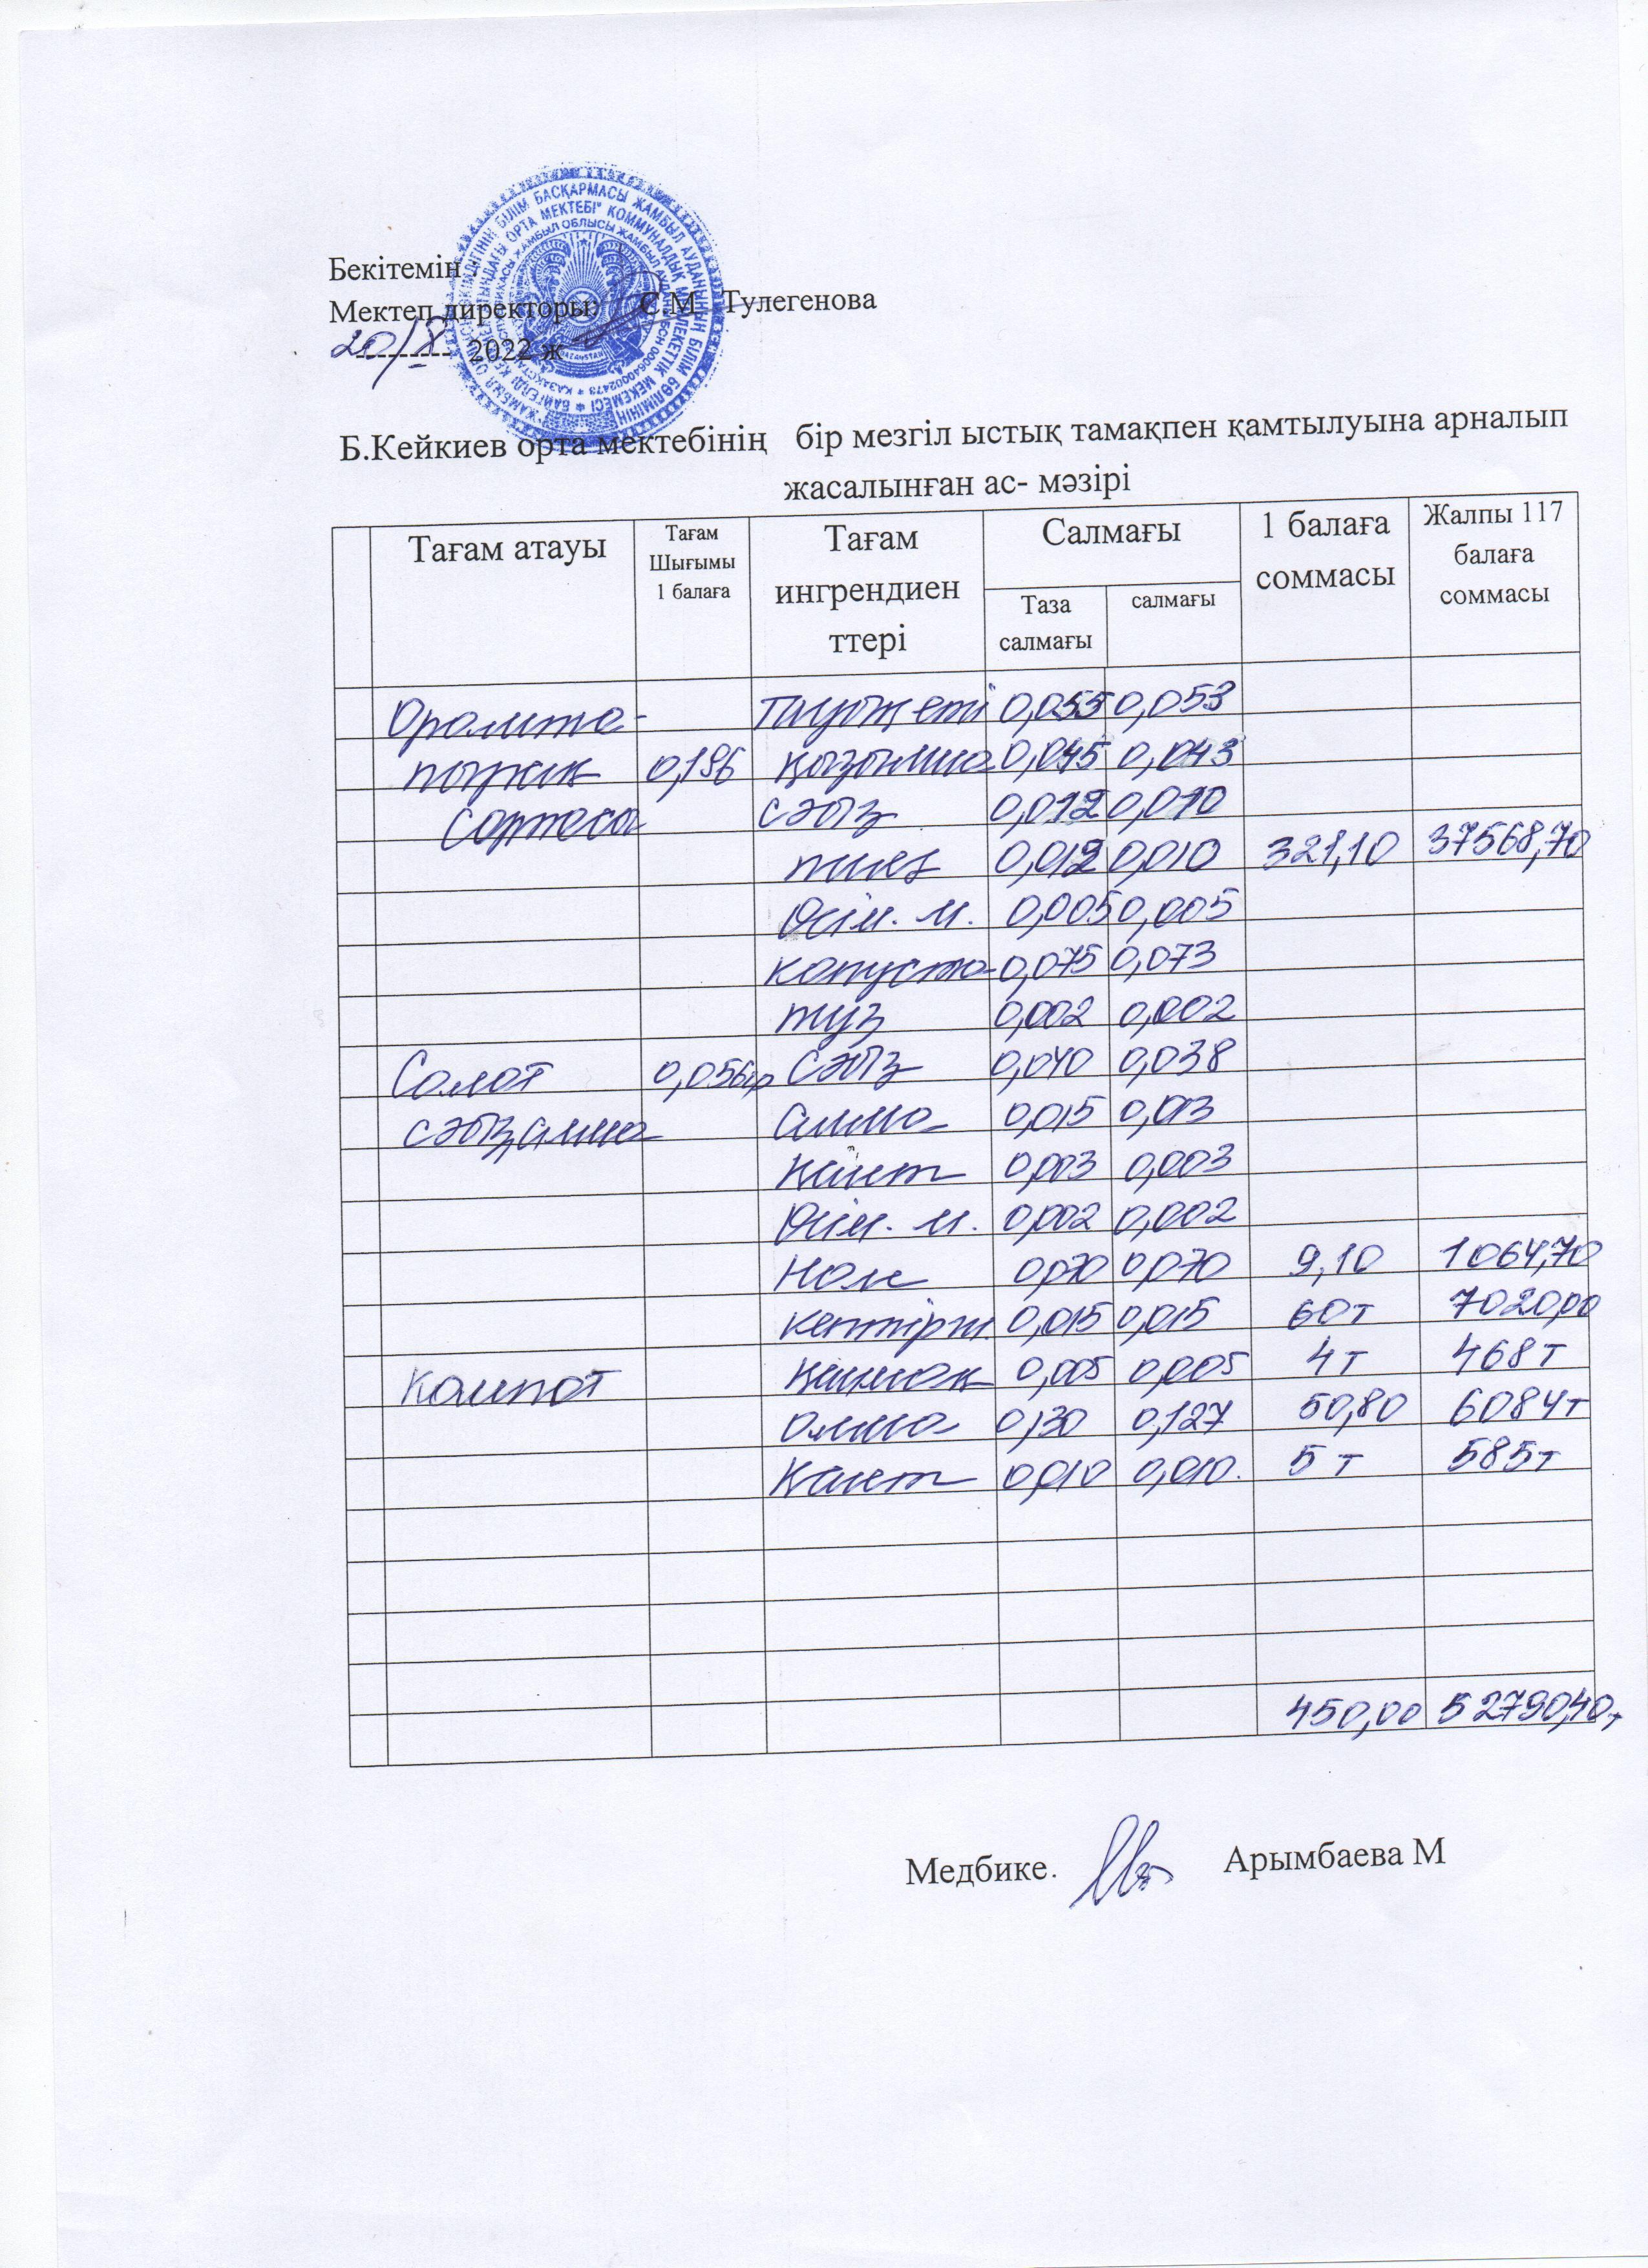 Бекітемін
Мектеп директоры: С М Тулегенова
20/X 2022 ж
Б.Кейкиев орта мектебінің бір мезгіл ыстық тамақпен қамтылуына арналып
жасалынған ас- мәзірі
Тағам атауы Тағам Шығымы 1 балаға Тағам ингрендиен ттері Салмағы 1 балаға соммасы Жалпы 117 балаға соммасы
Таза салмағы салмағы
Орамта- 0,055 0,053
0,196 0,045 0,043
сәбіз 0,012 0,010
пияз 0,012 0,010 321,10 37568,70
Өсім. м. 0,005 0,005
капуста 0,075 0,073
тұз 0,002 0,002
Салат 0,056гр сәбіз 0,040 0,038
сәбізалма алма 0,015 0,013
Қант 0,003 0,003
Өсім. м. 0,002 0,002
Нан 0,070 0,070 9,10 1064,70
0,015 0,015 60т 7020,00
Компот Қаймақ 0,005 0,005 4т 468т
алма 0,130 0,127 50,80 6084т
Қант 0,010 0,010. 5 т 585т
450,00 52790,40т
Медбике. Арымбаева М